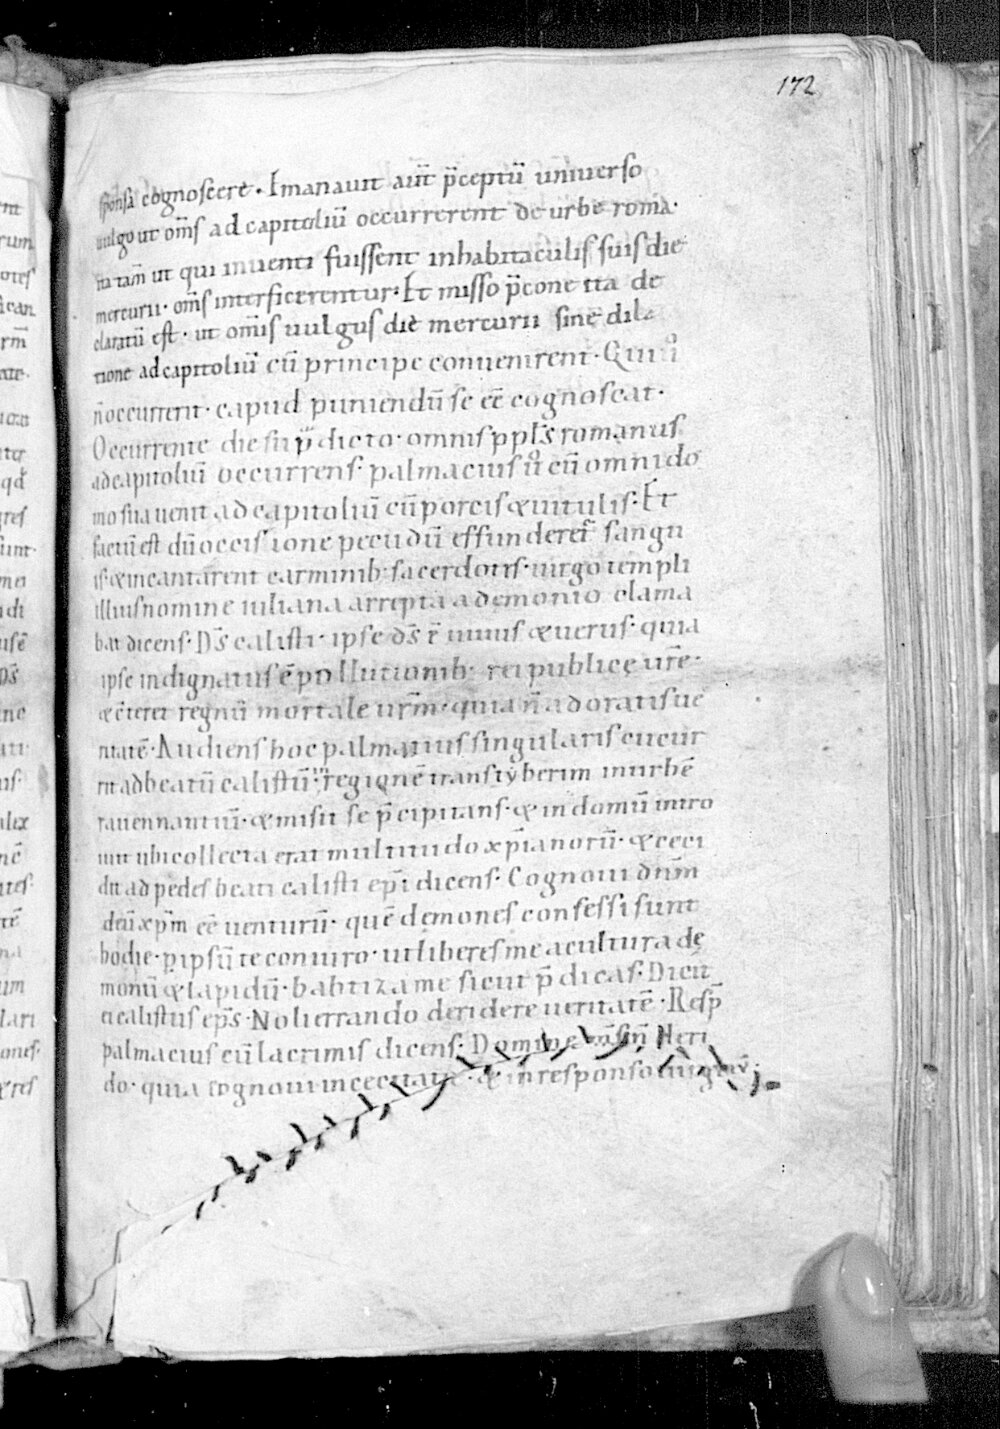 172
sponsa cognoscere · Emanauit aūt p̄ceptū uniuerso
uulgo ut om̄s ad capitoliū occurrerent de urbe roma·
ita tam̄ ut qui inuenti fuissent inhabitaculis suis die
mercurii· om̄s interficerentur· Et misso p̄cone ita de
claratū est· ut om̄is uulgus die mercurii sine dila
tione ad capitoliū cū principe conuenirent· Qui ů
n̄ occurrerit· capud puniendū se eē cognoscat·
Occurrente die sup̄dicto· omnis ppl̄s romanus
ad capitoliū occurrens· palmacius ů cū omni do
mo sua uenit ad capitoliū cū porcis & uitulis· Et
factū est dū occisione pecudū effunderet̄ sangu
is· & incantarent carminib· sacerdotis· uirgo templi
illius nomine iuliana arrepta a demonio clama
bat dicens· Ds̄ calisti· ipse ds̄ ē uiuus & uerus· quia
ipse indignatus ē pollutionib· rei publicę ur̄e·
& c̄teret regnū mortale ur̄m· quia n̄ adoratis ue
ritatē· Audiens hoc palmatius singularis cucur
rit ad beatū calistū regionē transtyberim in urbē
rauennantiū· & misit se p̄cipitans· & in domū intro
iuit ubi collecta erat multitudo xp̄ianorū· & ceci
dit ad pedes beati calisti ep̄i dicens· Cognoui dn̄m
deū xp̄m eē uenturū· quē demones confessi sunt
hodie· p ipsū te coniuro· ut liberes me a cultura dę
monū & lapidū· babtiza me sicut p̄dicas· Dicit
ei calistus ep̄s· Noli errando deridere ueritatē· Resp̄
palmacius cū lacrimis dicens· Domine m̄ sin̄ Heri
do· quia cognoui in cecitate· & in responso uirginū·